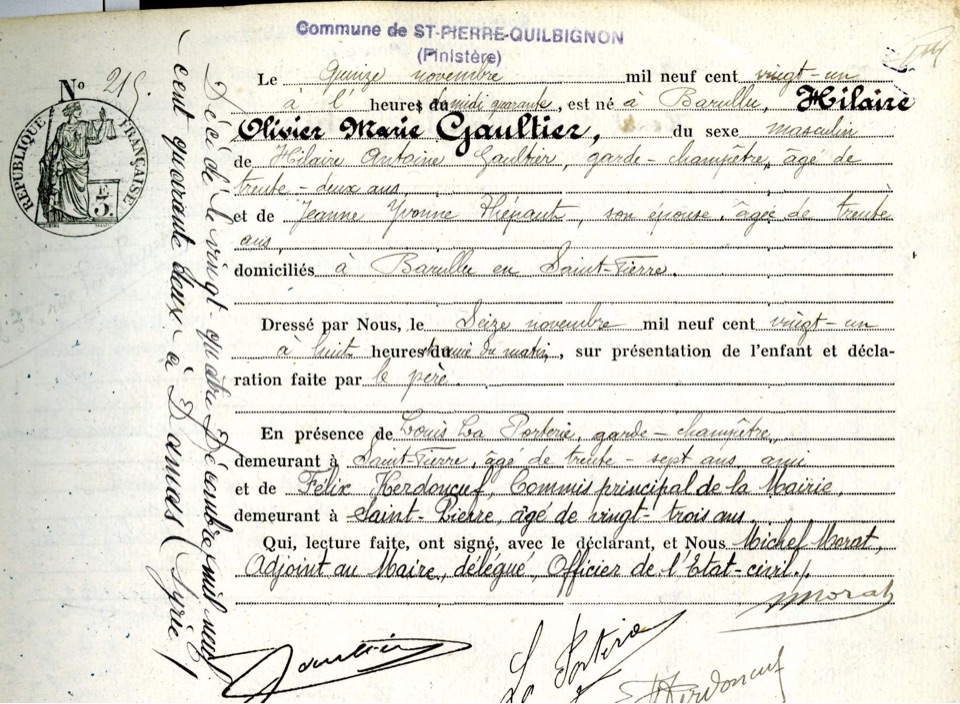 Commune de ST-PIERRE-QUILBIGNON
(Finistère)
No 215.
RÉPUBLIQUE FRANÇAISE
Le quinze novembre mil neuf cent vingt-un
à heures du midi quarante, est né à Barullu, Hilaire
Olivier Marie Gaultier, du sexe masculin
de Hilaire Antoine Gaultier, garde-champêtre, âgé de
trente-deux ans
et de Jeanne Yvonne Thépaut, son épouse, âgée de trente
ans,
domiciliés à Barullu en Saint-Pierre.
Dressé par Nous, le Seize novembre mil neuf cent vingt-un
à huit heures du matin, sur présentation de l'enfant et décla-
ration faite par le père.
En présence de Louis La Porterie, garde-champêtre,
demeurant à Saint-Pierre, âgé de trente-sept ans, ami
et de Félix Kerdoncuf, Commis principal de la Mairie,
demeurant à Saint-Pierre, âgé de vingt-trois ans
Qui, lecture faite, ont signé, avec le déclarant, et Nous Michel Morat,
Adjoint au Maire, délégué, Officier de l'Etat-civil./.
Morat
Gaultier
La Porterie
Kerdoncuf
Décédé le vingt-quatre Décembre mil neuf
cent quarante deux à Damas (Syrie)